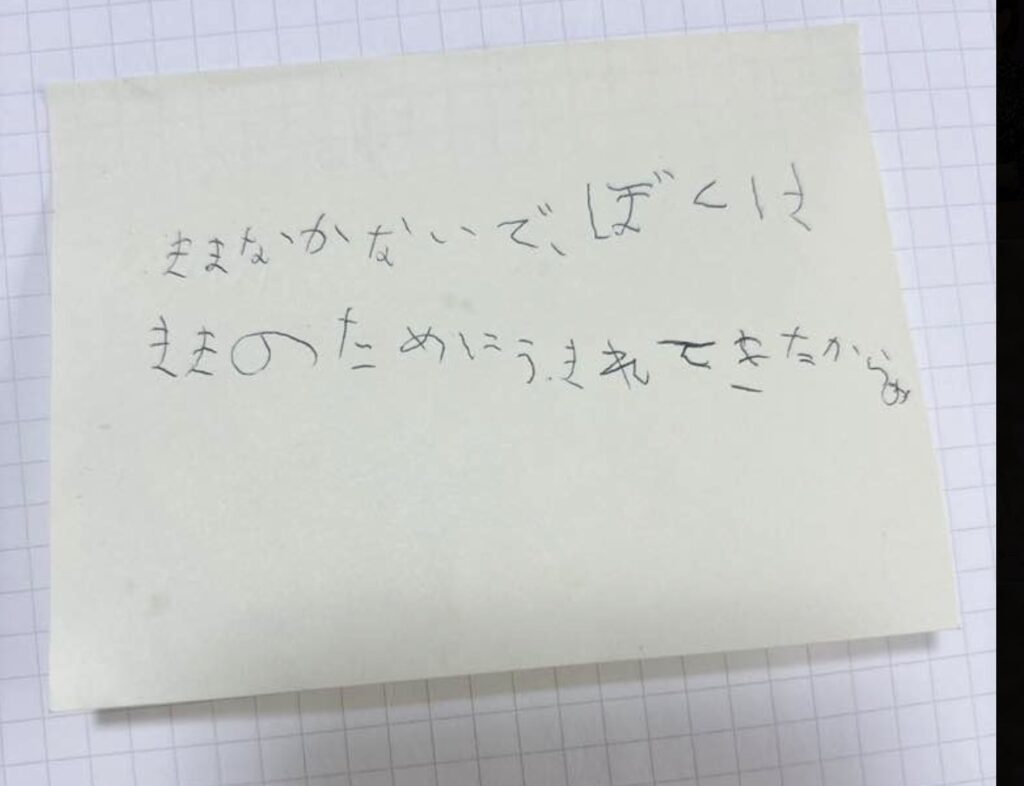 ままなかないで、ぼくは
ままのためにうまれてきたからね